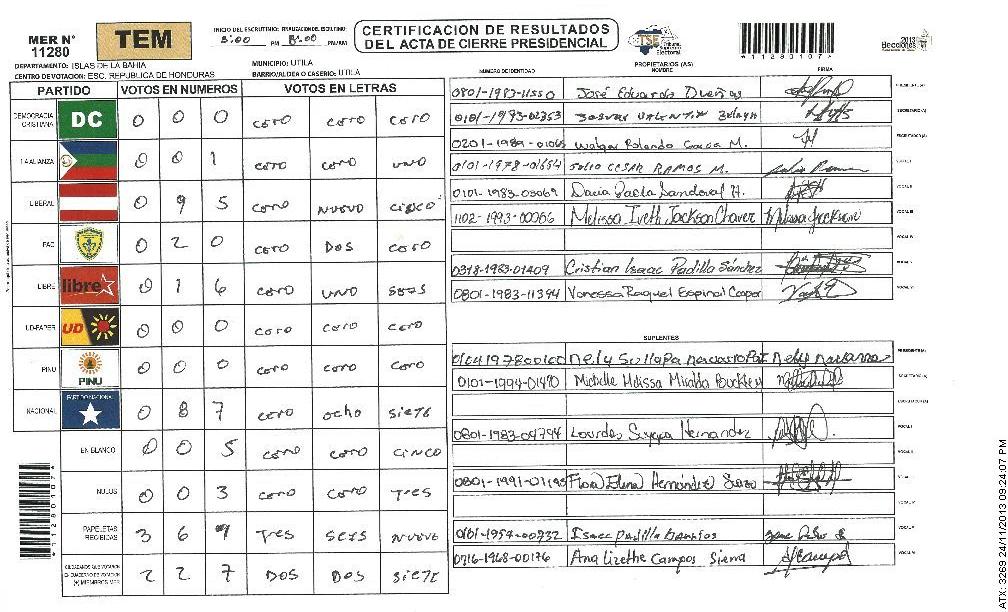 MER N° 11280
TEM
INICIO DEL ESCRUTINIO: FINALIZACION DEL ESCRUTINIO:
5:00 PM 8:00 PM/AM
CERTIFICACION DE RESULTADOS
DEL ACTA DE CIERRE PRESIDENCIAL
TSE Tribunal Supremo Electoral
2013 Elecciones
*11280107*
DEPARTAMENTO: ISLAS DE LA BAHIA MUNICIPIO: UTILA
CENTRO DE VOTACION: ESC. REPUBLICA DE HONDURAS BARRIO/ALDEA O CASERIO: UTILA
PARTIDO VOTOS EN NUMEROS VOTOS EN LETRAS
DEMOCRACIA CRISTIANA DC 0 0 0 cero cero cero
LA ALIANZA 0 0 1 cero cero uno
LIBERAL 0 9 5 cero nuevo cinco
PAC 0 2 0 cero Dos cero
LIBRE libre 0 1 6 cero uno seis
UD-FAPER UD 0 0 0 cero cero cero
PINU PINU 0 0 0 cero cero cero
NACIONAL PARTIDO NACIONAL 0 8 7 cero ocho siete
EN BLANCO 0 0 5 cero cero cinco
NULOS 0 0 3 cero cero Tres
PAPELETAS RECIBIDAS 3 6 9 Tres seis nuevo
CIUDADANOS QUE VOTARON EN CUADERNO DE VOTACION (+) MIEMBROS MER 2 2 7 Dos Dos siete
*11280107*
PROPIETARIOS (AS)
NUMERO DE IDENTIDAD NOMBRE FIRMA
0801-1983-11550 José Eduardo Dueñas PRESIDENTE(A)
0101-1993-02353 Zelaya SECRETARIO(A)
0201-1989-01065 Rolando Garcia M. ESCRUTADOR(A)
0101-1978-01654 Julio Cesar Ramos M. VOCAL I
0101-1983-03069 Dacia Paola Sandoval H. VOCAL II
1102-1993-00066 Melissa Iveth Jackson Chavez Melissa Jackson VOCAL III
VOCAL IV
0318-1983-01409 Cristian Isaac Padilla Sánchez VOCAL V
0801-1983-11394 Vanessa Raquel Espinal Cooper VOCAL VI
SUPLENTES
Nely PRESIDENTE(A)
0101-1994-01490 Michelle Melissa Miralda Buckley SECRETARIO(A)
ESCRUTADOR(A)
0801-1983-04794 Lourdes Suyapa Hernandez VOCAL I
VOCAL II
0801-1991-01195 Flora Elena Hernández VOCAL III
VOCAL IV
0101-1957-00732 Isaac Padilla VOCAL V
0716-1968-00176 Ana Lizethe Campos Sierra VOCAL VI
ATX: 3269 24/11/2013 09:24:07 PM